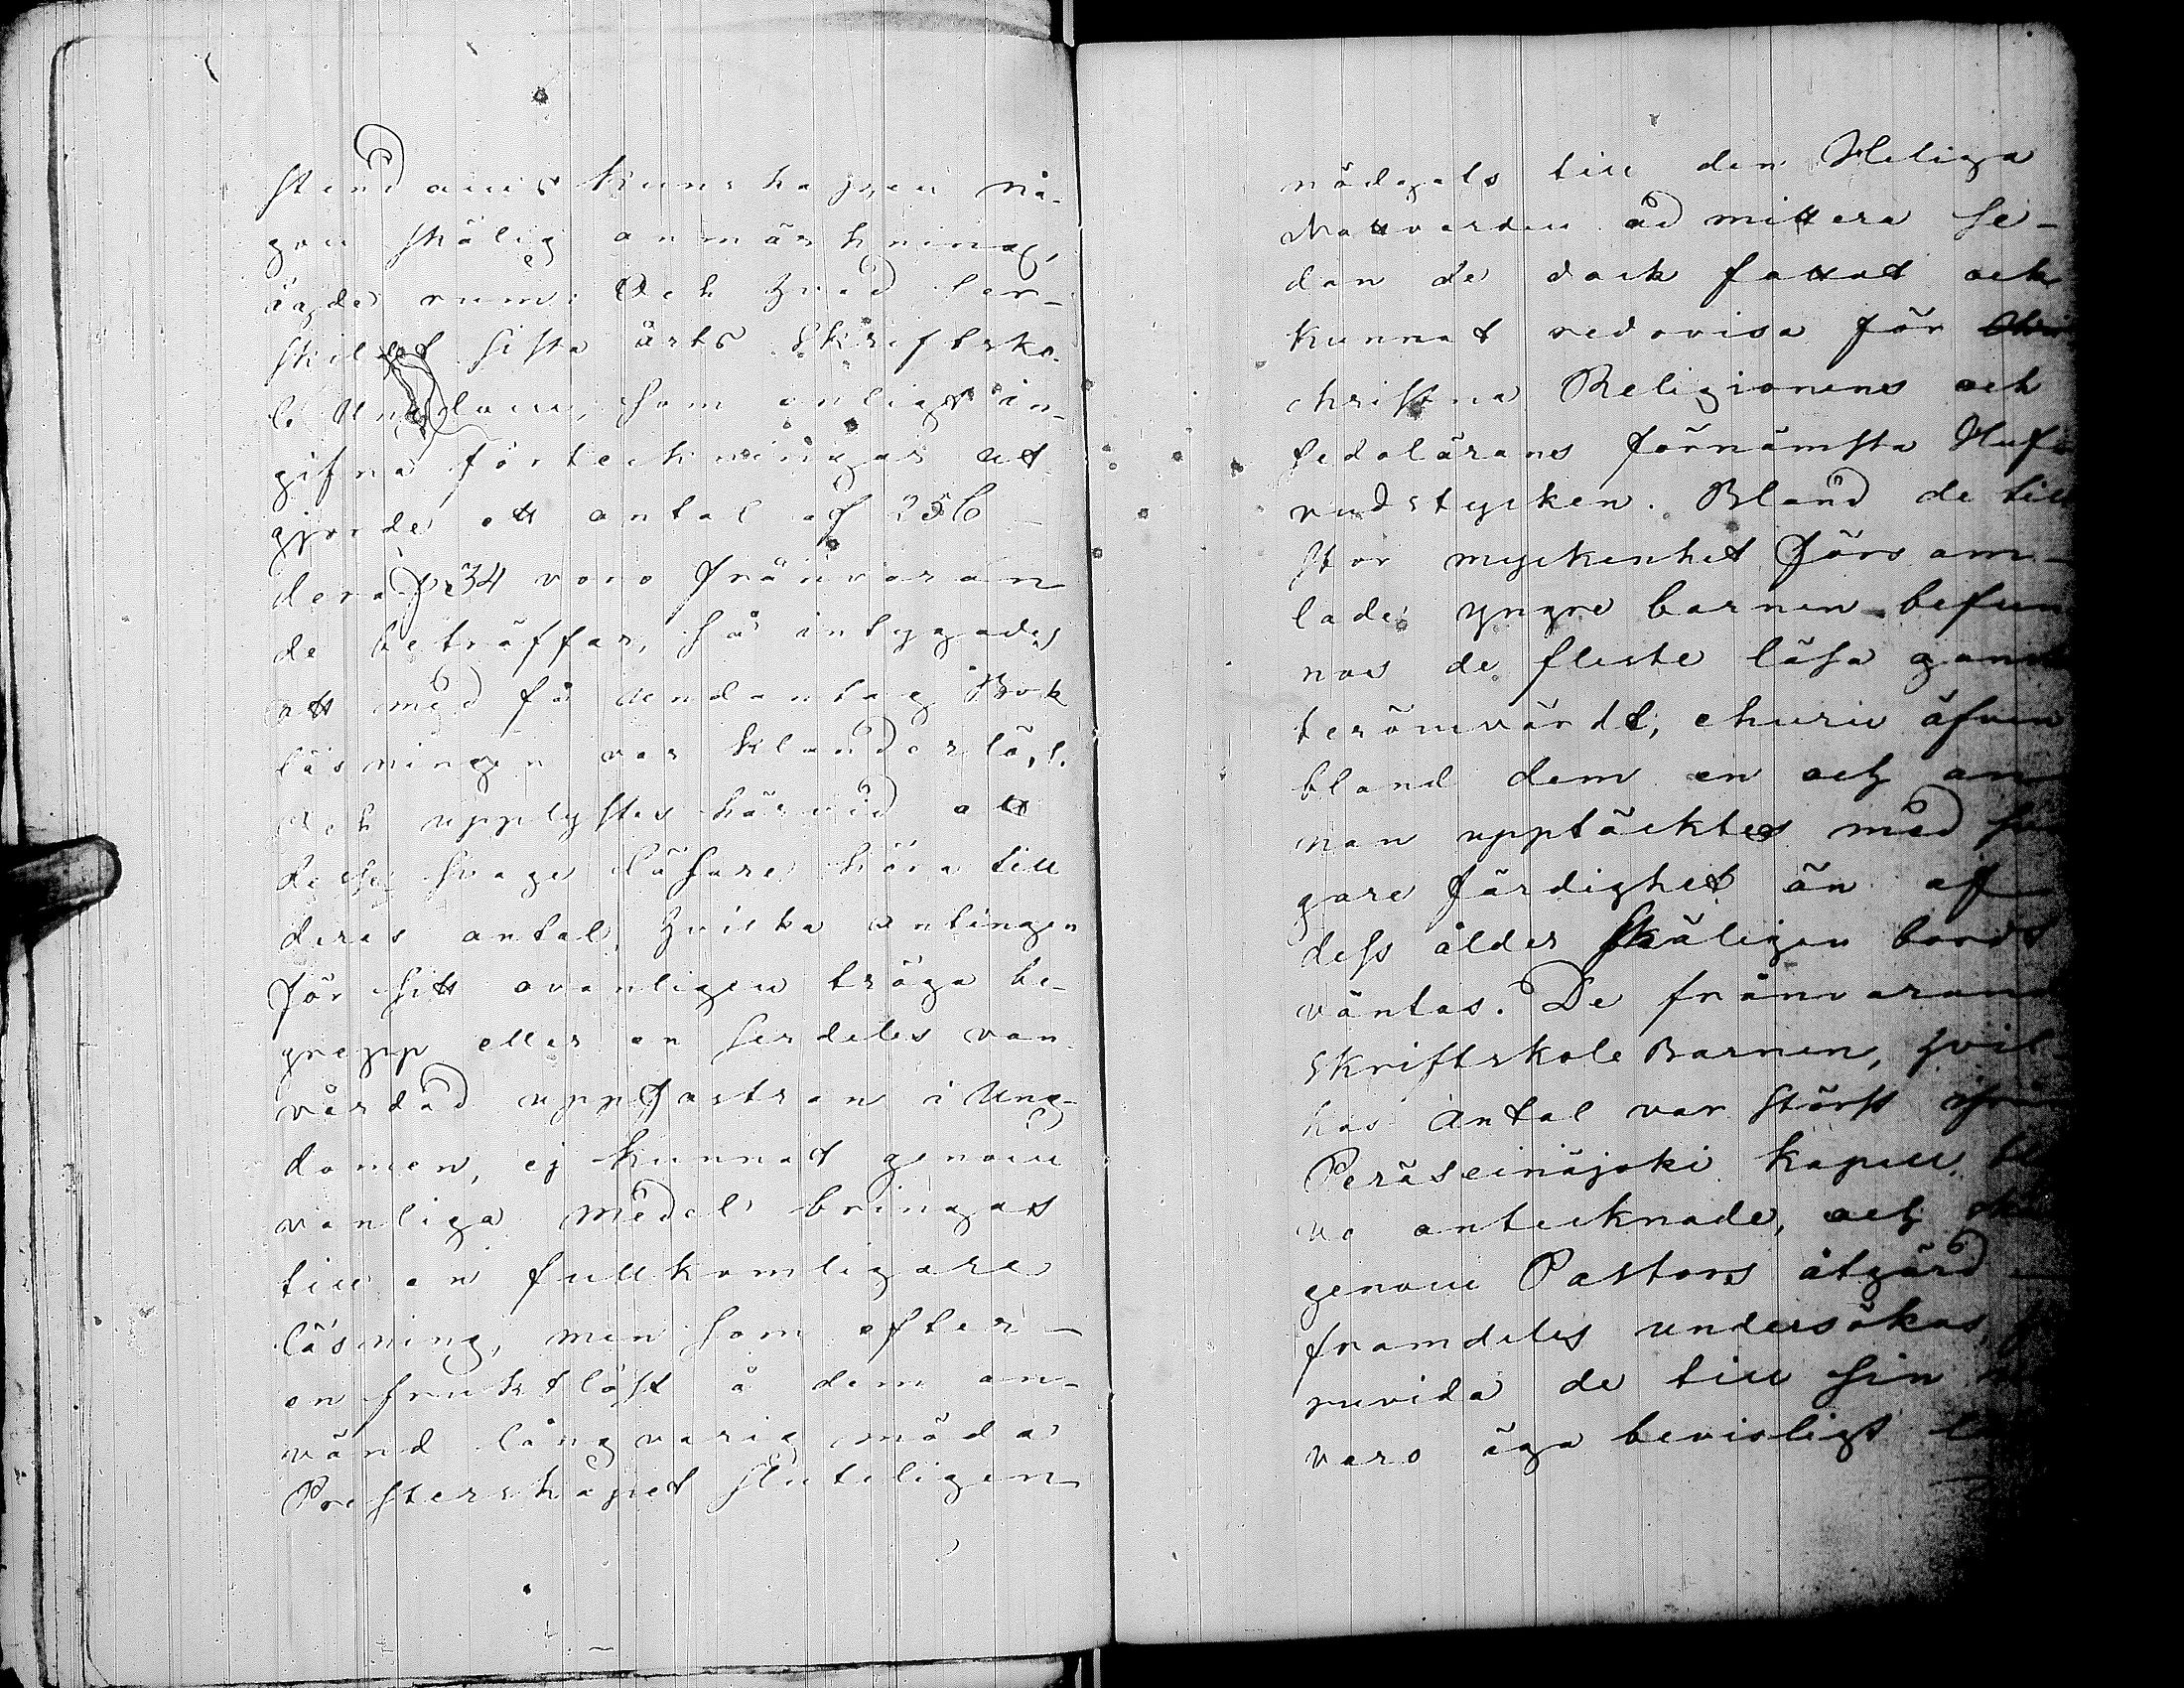 stendoms kunskapen nå-
gon skälig anmärkning,
ägde rum. Och hvad ser-
skildt sista årets Skriftsko-
le Ungdom, som enligt in-
gifna förteckningar ut
gjorde ett antal af 256
deraf 34 voro frånvaran
de beträffar, så intygades
att med få undantag Bok
läsningen var klanderlös.
Och upplystes härvid att
desse svage läsare höra till
deras antal, hvilka antingen
för sitt ovanligen tröga be-
grepp eller en serdeles van
vårdad uppfostran i Ung-
domen, ej kunnat genom
vanliga medel bringas
till en fullkomligare
läsning, men som efter
en fruktlöst å dem an-
vänd långvarig möda
Presterskapet sluteligen
nödgats till den Heliga
Nattvarden admittera se-
dan de dock fattat och
kunnat redovisa för
christna Religionens och
sedolärans förnämsta Huf-
vudstycken. Bland de till
stor myckenhet försam-
lade yngre barnen befun
nos de fleste läsa gans
berömvärdt, ehuru äfven
bland dem en och an
nan upptäcktes med
gare färdighet än af
dess ålder skäligen bordt
väntas. De frånvarand
Skriftskole Barnen, hvil-
kas antal var störst ifrån
Peräseinäjoki kapell, ble
vo antecknade, och
genom Pastors åtgärd
framdeles undersökas,
ruvida de till sin
varo äga bevisligt